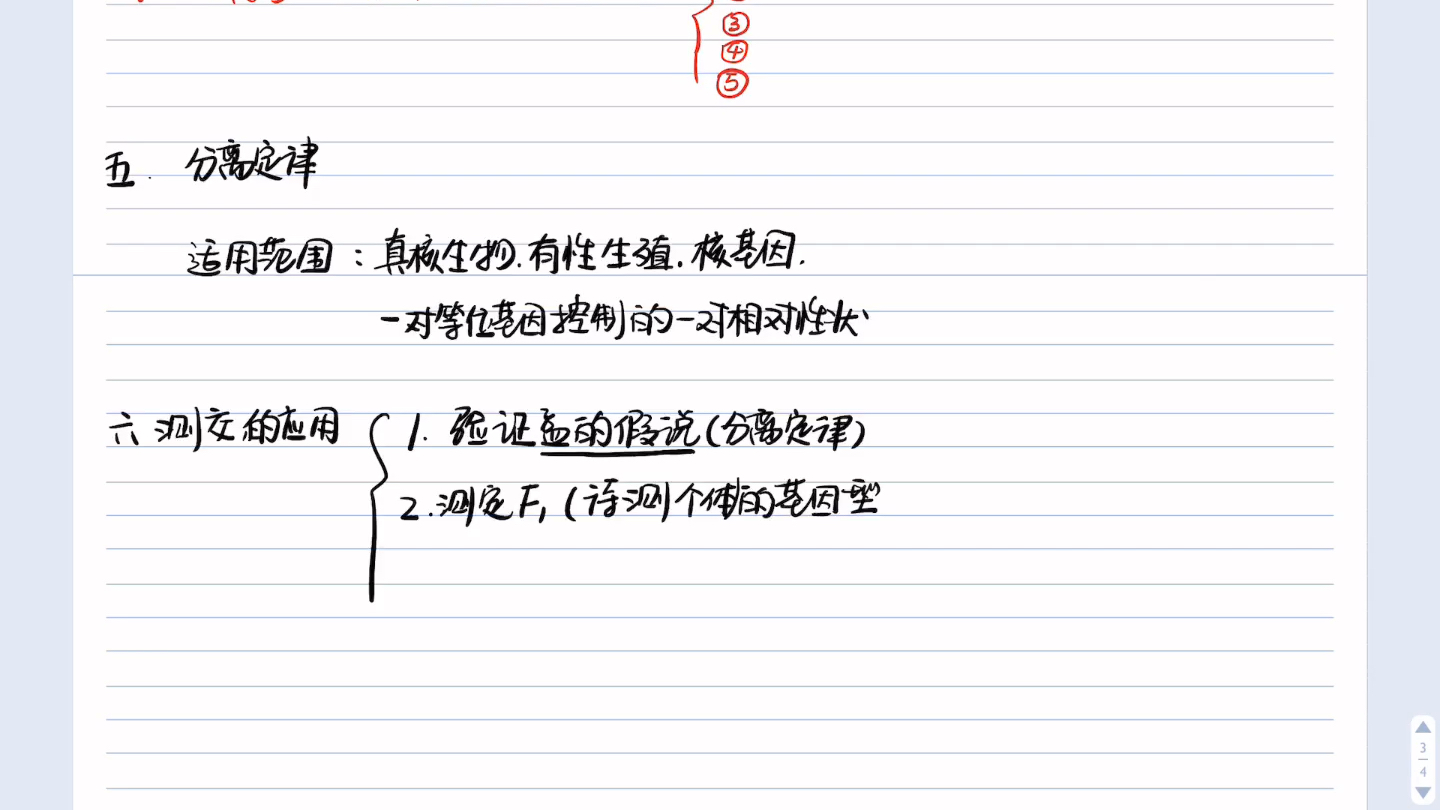 ③
④
⑤
五. 分离定律
适用范围:真核生物.有性生殖.核基因.
一对等位基因控制的一对相对性状
六.测交的应用
1. 验证孟的假说(分离定律)
2.测定F₁(待测个体的基因型
3
4